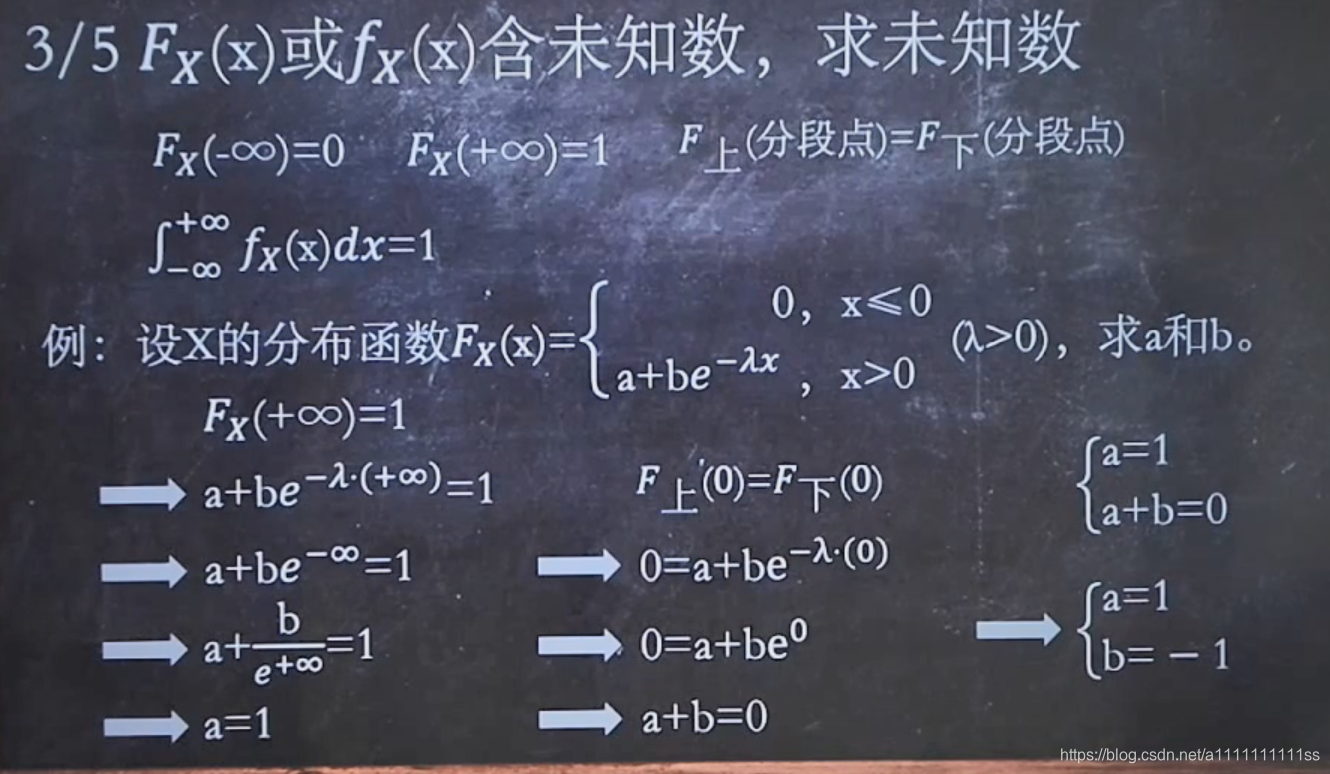 3/5 Fₓ(x)或fₓ(x)含未知数，求未知数
Fₓ(-∞)=0 Fₓ(+∞)=1 F上(分段点)=F下(分段点)
∫₋∞⁺∞ fₓ(x)dx=1
例：设X的分布函数Fₓ(x)={0，x≤0
a+be^{-λx}，x>0 (λ>0)，求a和b。
Fₓ(+∞)=1
➡ a+be^{-λ·(+∞)}=1
➡ a+be^{-∞}=1
➡ a+b/e^{+∞}=1
➡ a=1
F上(0)=F下(0)
➡ 0=a+be^{-λ·(0)}
➡ 0=a+be^0
➡ a+b=0
{a=1
a+b=0
➡ {a=1
b=－1
https://blog.csdn.net/a1111111111ss